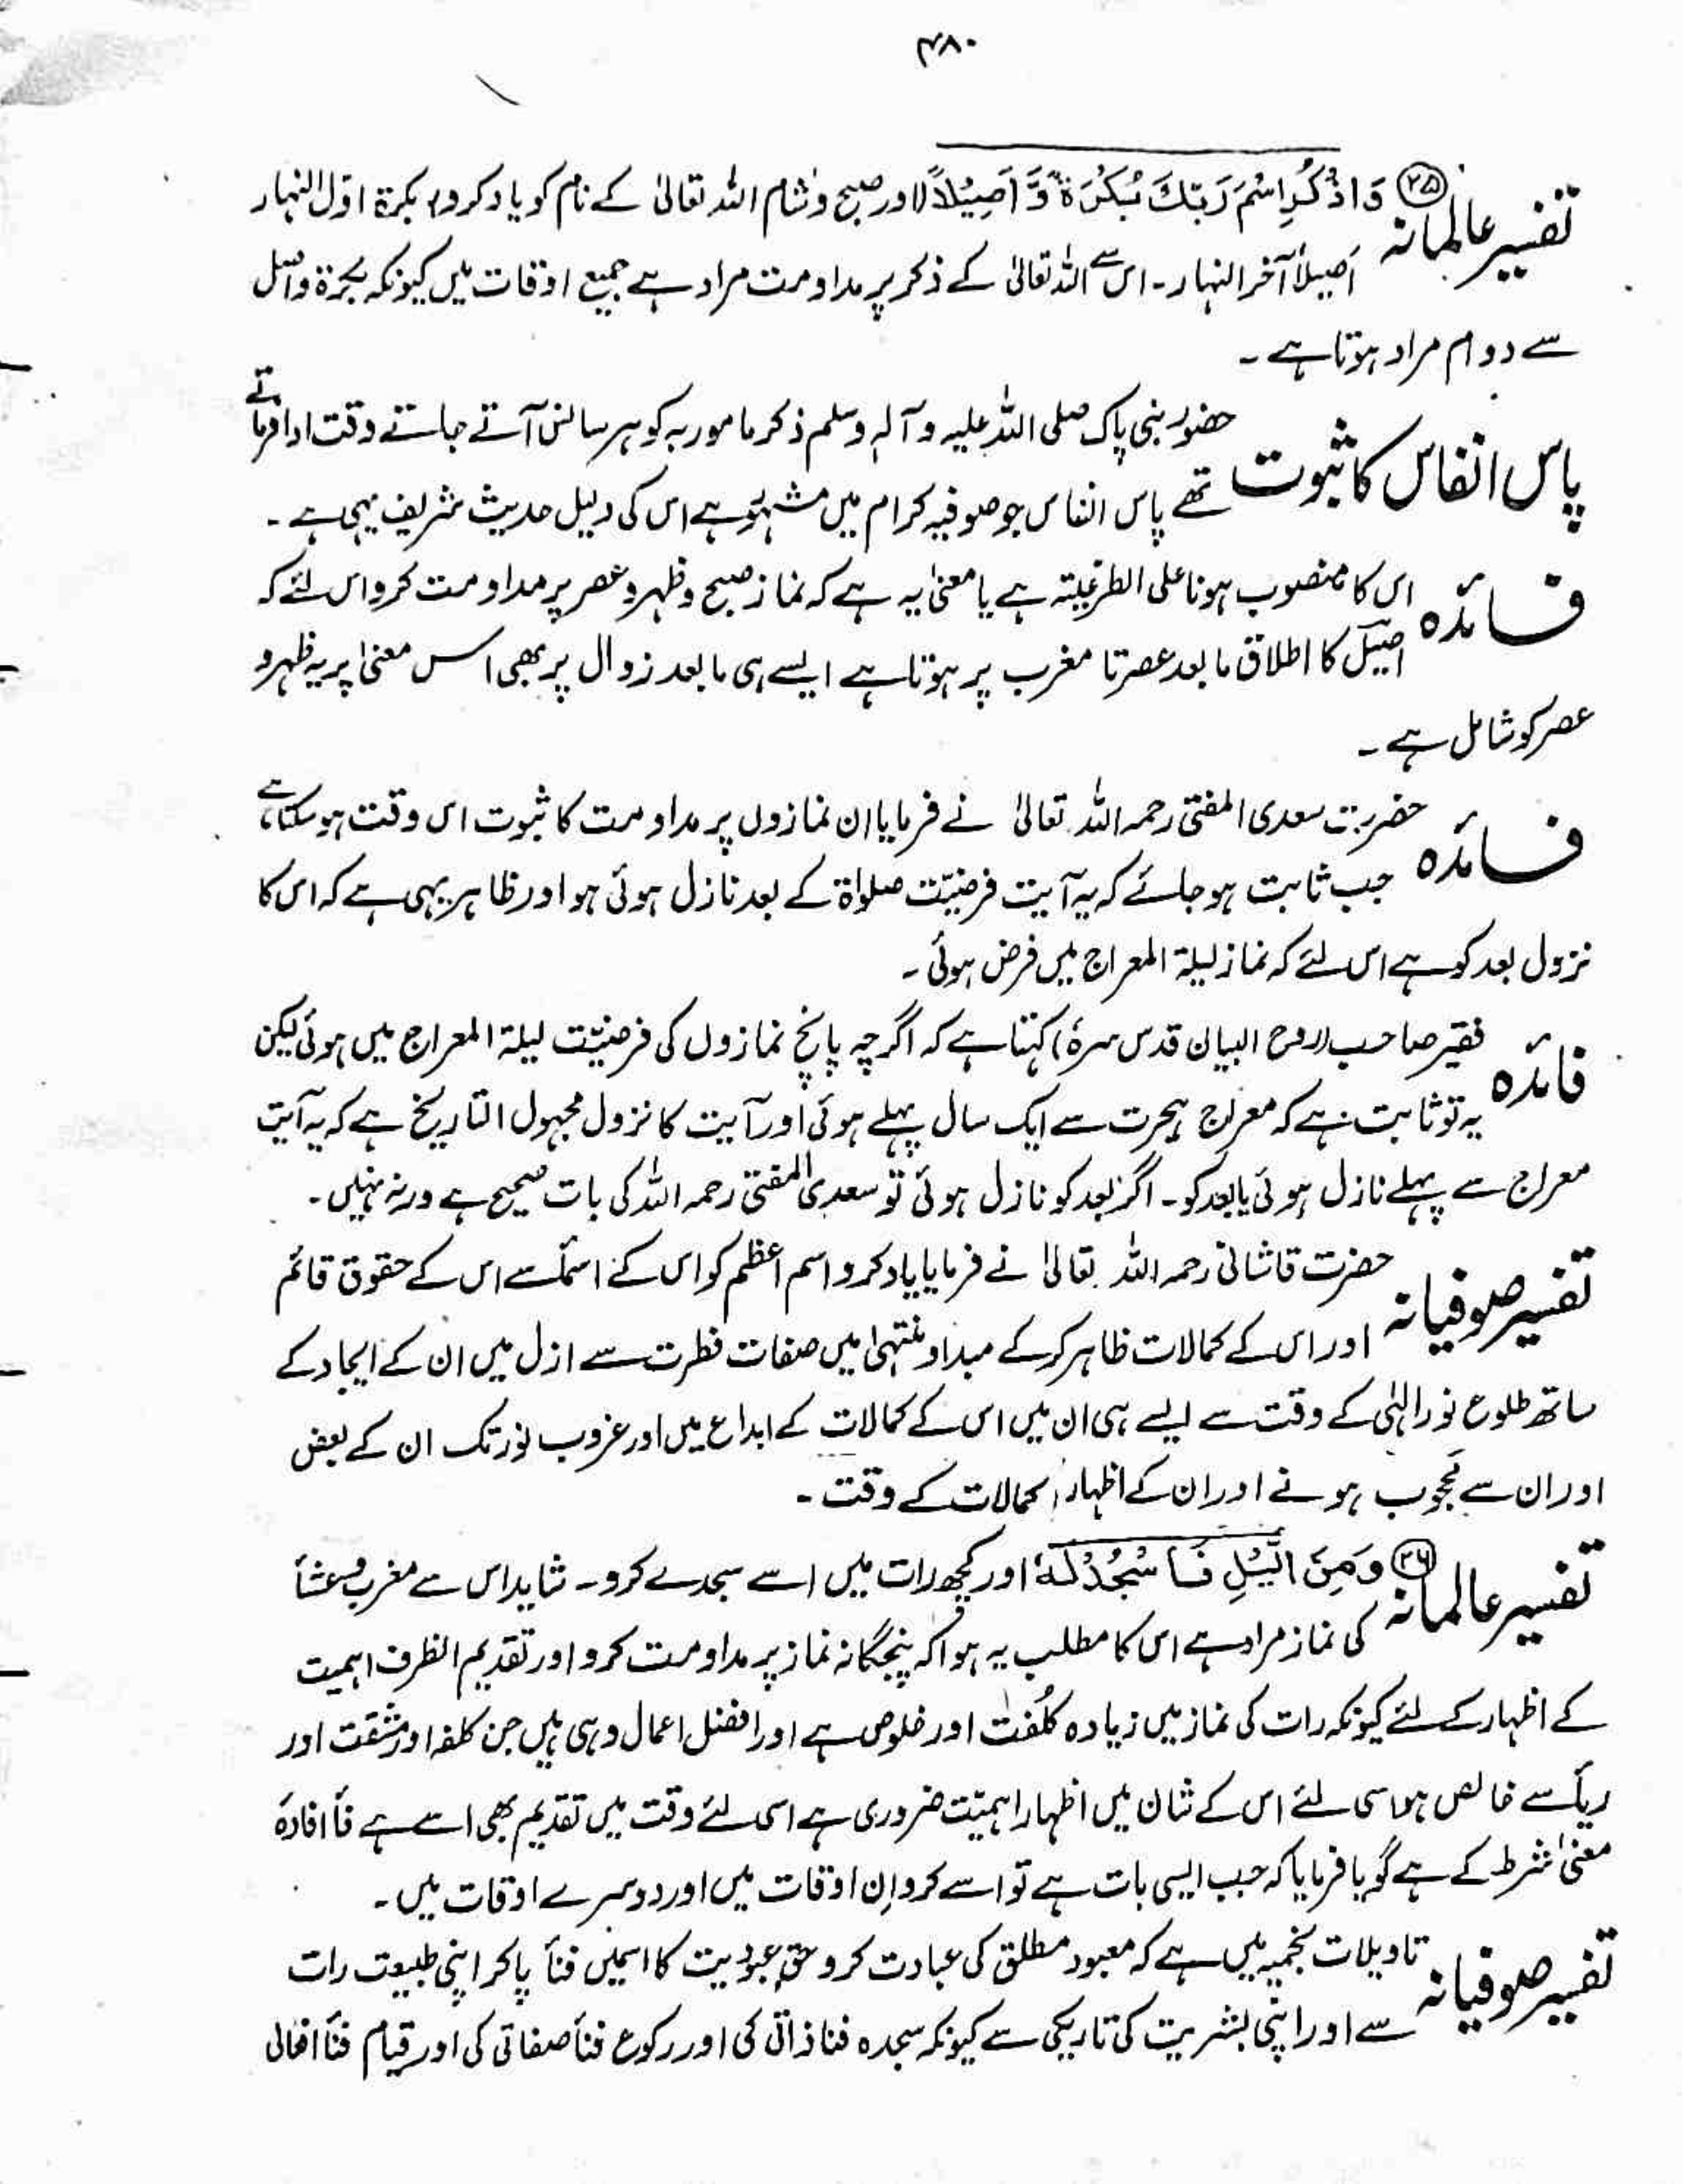 ۴۸۰
تفسیر عالمانہ ㉕ وَاذْكُرِ اسْمَ رَبِّكَ بُكْرَةً وَّ اَصِيْلًا (اور صبح و شام اللہ تعالیٰ کے نام کو یاد کرو) بکرۃ اوّل النہار
اَصیلاً آخر النہار۔ اس سے اللہ تعالیٰ کے ذکر پر مداومت مراد ہے جمیع اوقات میں کیونکہ بکرۃ و اصیل
سے دوام مراد ہوتا ہے۔
پاس انفاس کا ثبوت حضور نبی پاک صلی اللہ علیہ و آلہ وسلم ذکر مامور بہ کو ہر سانس آتے جاتے وقت ادا فرماتے
تھے پاس انفاس جو صوفیہ کرام میں مشہور ہے اس کی دلیل حدیث شریف یہی ہے۔
فائدہ اس کا منصوب ہونا علی الظرفیتہ ہے یا معنیٰ یہ ہے کہ نماز صبح و ظہر و عصر پر مداومت کرو اس لئے کہ
اصیل کا اطلاق مابعد عصر تا مغرب پر ہوتا ہے ایسے ہی مابعد زوال پر بھی اس معنیٰ پر یہ ظہر و
عصر کو شامل ہے۔
فائدہ حضرت سعدی المفتی رحمہ اللہ تعالیٰ نے فرمایا ان نمازوں پر مداومت کا ثبوت اس وقت ہو سکتا ہے
جب ثابت ہو جائے کہ یہ آیت فرضیّت صلوٰۃ کے بعد نازل ہوئی ہو اور ظاہر یہی ہے کہ اس کا
نزول بعد کو ہے اس لئے کہ نماز لیلۃ المعراج میں فرض ہوئی۔
فائدہ فقیر صاحب (روح البیان قدس سرہٗ) کہتا ہے کہ اگرچہ پانچ نمازوں کی فرضیّت لیلۃ المعراج میں ہوئی لیکن
یہ تو ثابت ہے کہ معراج ہجرت سے ایک سال پہلے ہوئی اور آیت کا نزول مجہول التاریخ ہے کہ یہ آیت
معراج سے پہلے نازل ہوئی یا بعد کو۔ اگر بعد کو نازل ہوئی تو سعدی المفتی رحمہ اللہ کی بات صحیح ہے ورنہ نہیں۔
تفسیر صوفیانہ حضرت قاشانی رحمہ اللہ تعالیٰ نے فرمایا یاد کرو اسم اعظم کو اس کے اسمأ سے اس کے حقوق قائم
اور اس کے کمالات ظاہر کر کے مبدا و منتہیٰ میں صفات فطرت سے ازل میں ان کے ایجاد کے
ساتھ طلوع نور الٰہی کے وقت سے ایسے ہی ان میں اس کے کمالات کے ابداع میں اور غروب نور تک ان کے بعض
اور ان سے محجوب ہونے اور ان کے اظہار کمالات کے وقت۔
تفسیر عالمانہ ㉖ وَمِنَ الَّيْلِ فَاسْجُدْ لَهٗ اور کچھ رات میں اسے سجدے کرو۔ شاید اس سے مغرب و عشأ
کی نماز مراد ہے اس کا مطلب یہ ہوا کہ پنجگانہ نماز پر مداومت کرو اور تقدیم الظرف اہمیت
کے اظہار کے لئے کیونکہ رات کی نماز میں زیادہ کُلفت اور خلوص ہے اور افضل اعمال وہی ہیں جن کلفہ اور مشقت اور
ریأ سے خالص ہو اسی لئے اس کے شان میں اظہار اہمیّت ضروری ہے اسی لئے وقت میں تقدیم بھی اسے ہے فأ افادہ
معنیٰ شرط کے ہے گویا فرمایا کہ جب ایسی بات ہے تو اسے کرو اِن اوقات میں اور دوسرے اوقات میں۔
تفسیر صوفیانہ تاویلات نجمیہ میں ہے کہ معبود مطلق کی عبادت کرو حق عبودیت کا اسمیں فنأ پا کر اپنی طبیعت رات
سے اور اپنی بشریت کی تاریکی سے کیونکہ سجدہ فنا ذاتی کی اور رکوع فنأ صفاتی کی اور قیام فنأ افعالی